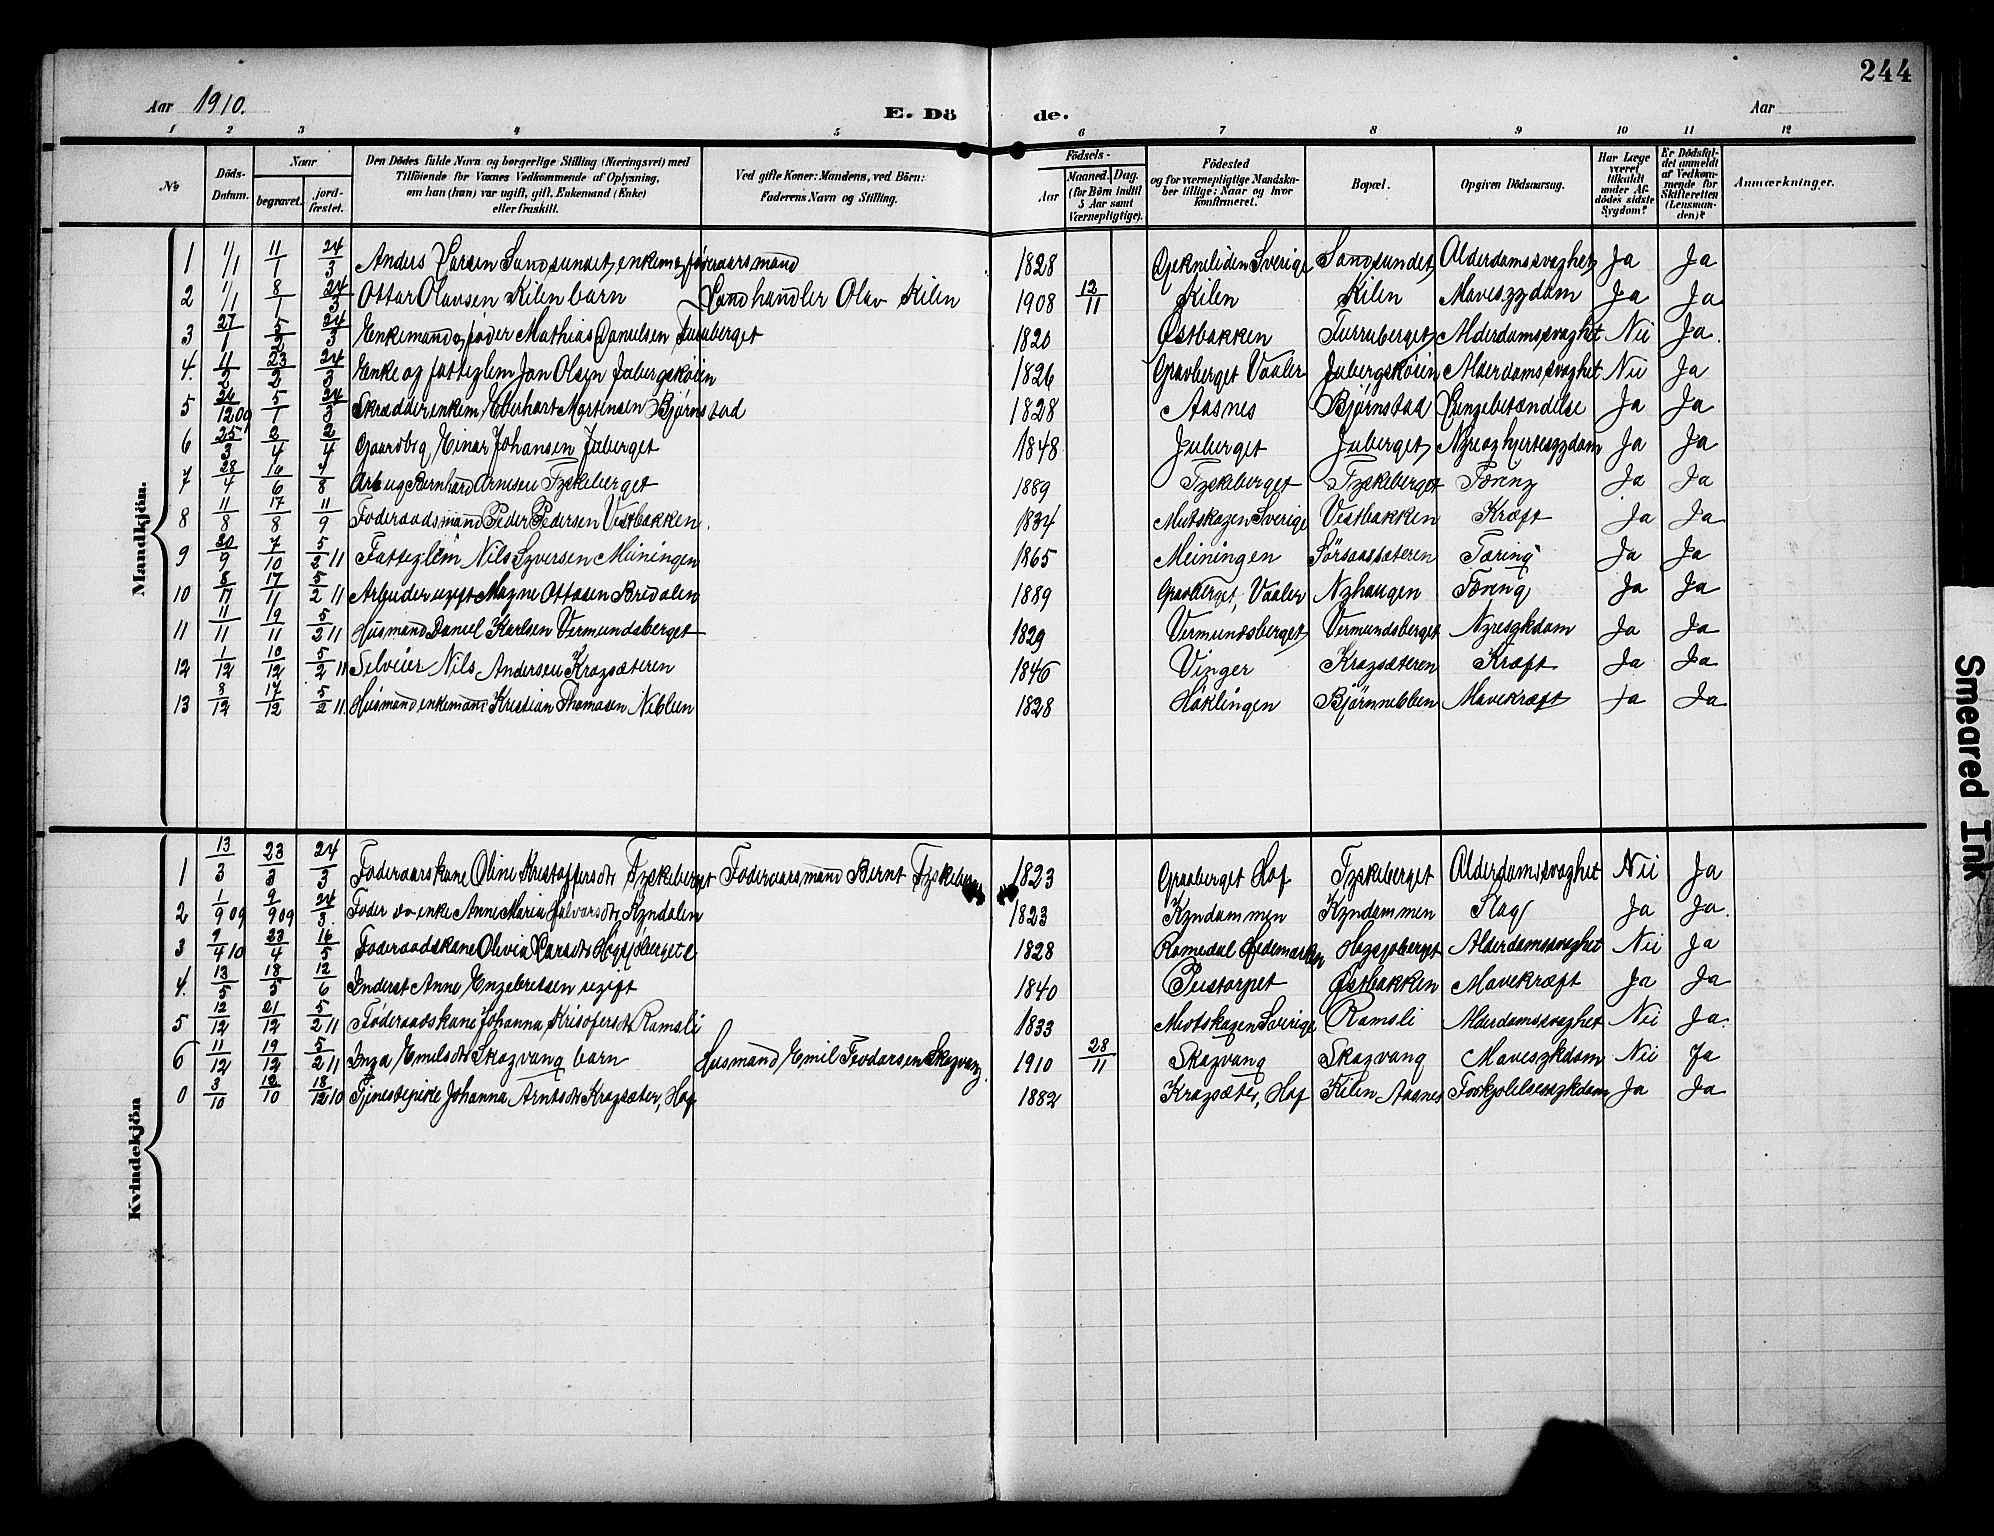 244
Aar 1910.
E. Dö de.
Aar
1 2 3 4 5 6 7 8 9 10 11 12
No
Döds-Datum.
Naar begravet. jord-fæstet.
Den Dödes fulde Navn og borgerlige Stilling (Næringsvei) med Tilföiende for Voxnes Vedkommende af Oplysning, om han (hun) var ugift, gift, Enkemand (Enke) eller fraskilt.
Ved gifte Koner: Mandens, ved Börn: Faderens Navn og Stilling.
Födsels- Aar Maaned. Dag. (for Börn indtil 5 Aar samt Værnepligtige).
Födested og for værnepligtige Mandskaber tillige: Naar og hvor Konfirmeret.
Bopæl.
Opgiven Dödsaarsag.
Har Læge været tilkaldt under Afdödes sidste Sygdom?
Er Dödsfaldet anmeldt af Vedkommende for Skifteretten (Lensmanden)?
Anmærkninger.
Mandkjön.
1 1/1 11/1 24/3 Anders Larsen Sandsundet, enkem. føderaarsmand 1828 Sverige Sandsundet Alderdomssvaghet Ja Ja
2 1/1 8/1 24/3 Ottar Olavsen Kilen barn Landhandler Olav Kilen 1908 12/11 Kilen Kilen Mavesygdom Ja Ja
3 27/1 5/2 24/3 Enkemand og føder Mathias Danielsen Furuberget 1820 Østbakken Furruberget Alderdomssvaghet Nei Ja.
4. 11/2 23/2 24/3 Enke og fattiglem Jan Olsen Jubergskøien 1826 Gravberget Vaaler Jubergskøien Alderdomssvaghet Nei Ja
5 24/12 09 5/1 24/3 Skrædderenkem. Eberhart Martensen Bjørnstad 1828 Aasnes Bjørnstad Lungebetændelse Ja Ja
6 25/3 2/4 2/4 Gaardbrg Einar Johansen Juberget 1848 Juberget Juberget Nyre og hjertesygdom Ja Ja
7 28/4 16/6 /8 Arb ug Bernhard Arnesen Tyskeberget 1889 Tyskeberget Tyskeberget Tæring Ja Ja
8 11/8 17/8 11/9 Foderaadsmand Peder Pedersen Vestbakken. 1834 Medskogen Sverige Vestbakken Kræft Ja Ja
9 30/9 7/10 5/2 11 Fattiglem Nils Syversen Meiningen 1865 Meiningen Sørsaassæteren Tæring Ja Ja
10 8/11 17/11 5/2 11 Arbeider ugift Magne Ottosen Bredalen 1889 Gravberget, Vaaler Nyhaugen Tæring Ja Ja
11 11/11 19/11 5/2 11 Husmand Daniel Karlsen Vermundsberget 1829 Vermundsberget Vermundsberget Nyresykdom Ja Ja
12 1/12 10/12 5/2 11 Selveier Nils Andersen Kragsæteren 1846 Vinger Kragsæteren Kræft Ja Ja
13 8/12 17/12 5/2 11. Husmand enkemand Kristian Thomasen Nebben 1828 Haklingen Bjørnnebben Mavekræft Ja Ja
Kvindekjön
1 13/3 23/3 24/3 Foderaarskane Oline Kristoffersdtr Tyskeberget Foderaarsmand Bernt Tyskeberget 1823 Graaberget Hof Tyskeberget Alderdomssvaghet Nei Ja
2 1/9 09 9/9 09 24/3. Foder av enke Anne Maria Halvarsdtr Kyndalen 1823 Kyndammen Kyndammen Slag Ja Ja.
3 9/4 10 23/4 16/5 Foderaadskane Olivia Larsdtr 1828 Romedal Hedemarken Alderdomssvaghet Nei Ja
4. 13/5 18/5 12/6 Inderst Anne Engebretsen ugift 1840 Peistorpet Østbakken Mavekræft Ja Ja
5 12/12 21/12 5/2 11 Føderaadskane Johanna Kristofersdtr Ramsli 1833 Medskogen Sverige Ramsli Alderdomssvaghet Nei Ja.
6 11/12 19/12 5/2 11 Inga Emilsdtr Skogvang barn Husmand Emil Feodorsen Skogvang. 1910 28/11 Skogvang Skogvang Mavesykdom Nei Ja
0 3/10 12/10 18/12 10 Tjenestepike Johanna Arntsdtr Kragsæter, Hof 1882 Kragsæter, Hof Kilen Aasnes Forkjølelsessykdom Ja Ja
Smeared Ink